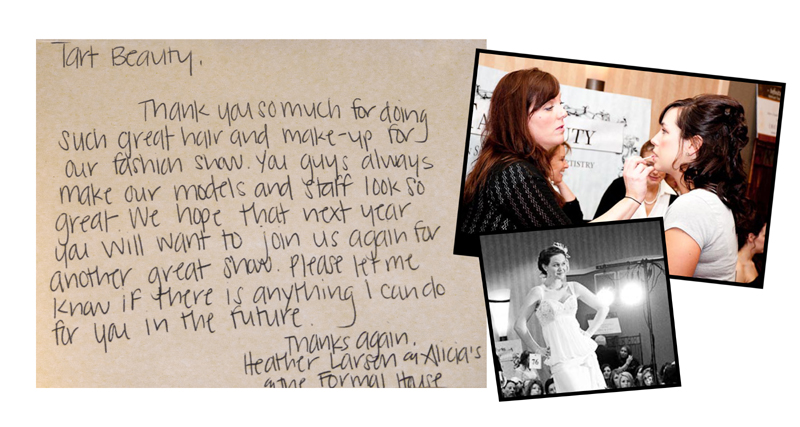 Tart Beauty,
Thank you so much for doing
such great hair and make-up for
our fashion show. You guys always
make our models and staff look so
great. We hope that next year
you will want to join us again for
another great show. Please let me
know if there is anything I can do
for you in the future.
Thanks again,
Heather Larsen Alicia's
The Formal House
BEAUTY
ARTISTRY
76